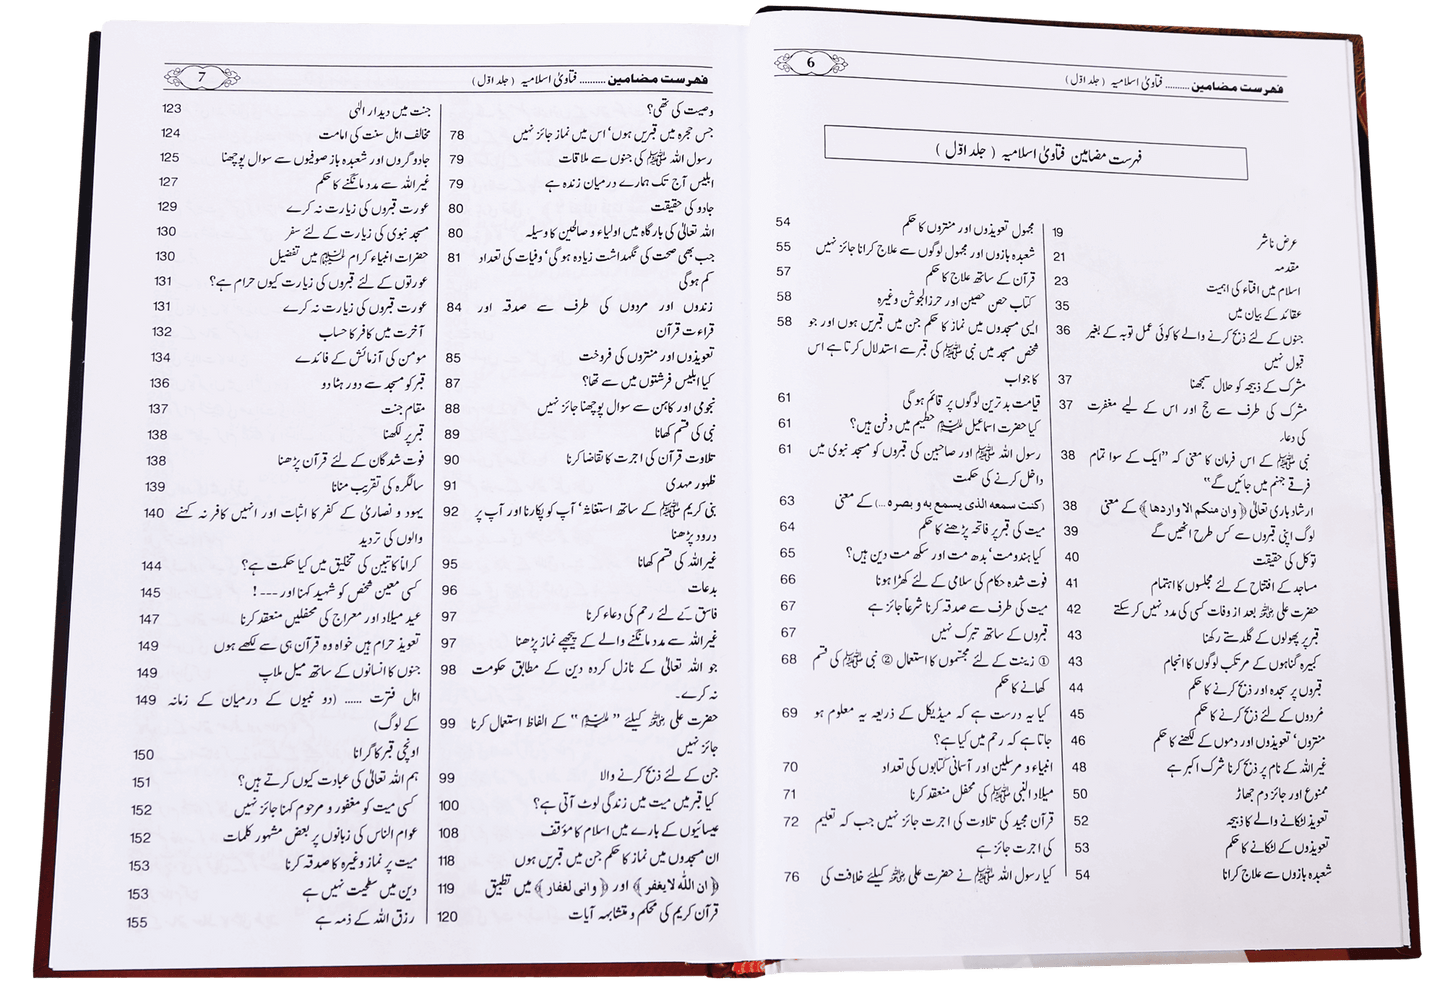 فهرست مضامین .......... فتاویٰ اسلامیہ (جلد اوّل)
6
فہرست مضامین فتاویٰ اسلامیہ (جلد اوّل)
عرض ناشر 19
مقدمہ 21
اسلام میں افتاء کی اہمیت 23
عقائد کے بیان میں 35
جنوں کے لئے ذبح کرنے والے کا کوئی عمل توبہ کے بغیر 36
قبول نہیں
مشرک کے ذبیحہ کو حلال سمجھنا 37
مشرک کی طرف سے حج اور اس کے لیے مغفرت 37
کی دعاء
نبی ﷺ کے اس فرمان کا معنی کہ "ایک کے سوا تمام 38
فرقے جہنم میں جائیں گے"
ارشاد باری تعالیٰ ﴿وان منکم الا واردھا﴾ کے معنی 38
لوگ اپنی قبروں سے کس طرح اٹھیں گے 39
توکل کی حقیقت 40
مساجد کے افتتاح کے لئے مجلسوں کا اہتمام 41
حضرت علی رضی اللہ عنہ بعد از وفات کسی کی مدد نہیں کر سکتے 42
قبر پر پھولوں کے گلدستے رکھنا 43
کبیرہ گناہوں کے مرتکب لوگوں کا انجام 43
قبروں پر سجدہ اور ذبح کرنے کا حکم 44
مُردوں کے لئے ذبح کرنے کا حکم 45
منتروں' تعویذوں اور دموں کے لکھنے کا حکم 46
غیر اللہ کے نام پر ذبح کرنا شرک اکبر ہے 48
ممنوع اور جائز دم جھاڑ 50
تعویذ لٹکانے والے کا ذبیحہ 52
تعویذوں کے لٹکانے کا حکم 53
شعبدہ بازوں سے علاج کرانا 54
مجمول تعویذوں اور منتروں کا حکم 54
شعبدہ بازوں اور مجمول لوگوں سے علاج کرانا جائز نہیں 55
قرآن کے ساتھ علاج کا حکم 57
کتاب حصن حصین اور حرز الجوشن وغیرہ 58
ایسی مسجدوں میں نماز کا حکم جن میں قبریں ہوں اور جو 58
شخص مسجد میں نبی ﷺ کی قبر سے استدلال کرتا ہے اس
کا جواب
قیامت بدترین لوگوں پر قائم ہو گی 61
کیا حضرت اسماعیل علیہ السلام حطیم میں دفن ہیں؟ 61
رسول اللہ ﷺ اور صاحبین کی قبروں کو مسجد نبوی میں 61
داخل کرنے کی حکمت
(کنت سمعه الذی یسمع به و بصره ...) کے معنی 63
میت کی قبر پر فاتحہ پڑھنے کا حکم 64
کیا ہندومت' بدھ مت اور سکھ مت دین ہیں؟ 65
فوت شدہ حکام کی سلامی کے لئے کھڑا ہونا 66
میت کی طرف سے صدقہ کرنا شرعاً جائز ہے 67
قبروں کے ساتھ تبرک نہیں 67
① زینت کے لئے مجسّموں کا استعمال ② نبی ﷺ کی قسم 68
کھانے کا حکم
کیا یہ درست ہے کہ میڈیکل کے ذریعہ یہ معلوم ہو 69
جاتا ہے کہ رحم میں کیا ہے؟
انبیاء و مرسلین اور آسمانی کتابوں کی تعداد 70
میلاد النبی ﷺ کی محفل منعقد کرنا 71
قرآن مجید کی تلاوت کی اجرت جائز نہیں جب کہ تعلیم 72
کی اجرت جائز ہے
کیا رسول اللہ ﷺ نے حضرت علی رضی اللہ عنہ کیلئے خلافت کی 76
فهرست مضامین .......... فتاویٰ اسلامیہ (جلد اوّل)
7
وصیت کی تھی؟
جس حجرہ میں قبریں ہوں' اس میں نماز جائز نہیں 78
رسول اللہ ﷺ کی جنوں سے ملاقات 79
ابلیس آج تک ہمارے درمیان زندہ ہے 79
جادو کی حقیقت 80
اللہ تعالیٰ کی بارگاہ میں اولیاء و صالحین کا وسیلہ 80
جب بھی صحت کی نگہداشت زیادہ ہو گی' وفیات کی تعداد 81
کم ہوگی
زندوں اور مردوں کی طرف سے صدقہ اور 84
قراءت قرآن
تعویذوں اور منتروں کی فروخت 85
کیا ابلیس فرشتوں میں سے تھا؟ 87
نجومی اور کاہن سے سوال پوچھنا جائز نہیں 88
نبی کی قسم کھانا 89
تلاوت قرآن کی اجرت کا تقاضا کرنا 90
ظہور مہدی 91
نبی کریم ﷺ کے ساتھ استغاثہ' آپ کو پکارنا اور آپ پر 92
درود پڑھنا
غیر اللہ کی قسم کھانا 95
بدعات 96
فاسق کے لئے رحم کی دعاء کرنا 97
غیر اللہ سے مدد مانگنے والے کے پیچھے نماز پڑھنا 97
جو اللہ تعالیٰ کے نازل کردہ دین کے مطابق حکومت 98
نہ کرے۔
حضرت علی رضی اللہ عنہ کیلئے "علیہ السلام" کے الفاظ استعمال کرنا 99
جائز نہیں
جن کے لئے ذبح کرنے والا 99
کیا قبر میں میت میں زندگی لوٹ آتی ہے؟ 100
عیسائیوں کے بارے میں اسلام کا مؤقف 108
ان مسجدوں میں نماز کا حکم جن میں قبریں ہوں 118
﴿ان اللہ لا یغفر﴾ اور ﴿وانی لغفار﴾ میں تطبیق 119
قرآن کریم کی محکم و متشابہ آیات 120
جنت میں دیدار الٰہی 123
مخالف اہل سنت کی امامت 124
جادوگروں اور شعبدہ باز صوفیوں سے سوال پوچھنا 125
غیر اللہ سے مدد مانگنے کا حکم 127
عورت قبروں کی زیارت نہ کرے 129
مسجد نبوی کی زیارت کے لئے سفر 130
حضرات انبیاء کرام علیہم السلام میں تفضیل 130
عورتوں کے لئے قبروں کی زیارت کیوں حرام ہے؟ 131
عورت قبروں کی زیارت نہ کرے 131
آخرت میں کافر کا حساب 132
مومن کی آزمائش کے فائدے 134
قبر کو مسجد سے دور ہٹا دو 136
مقام جنت 137
قبر پر لکھنا 138
فوت شدگان کے لئے قرآن پڑھنا 138
سالگرہ کی تقریب منانا 139
یہود و نصاریٰ کے کفر کا اثبات اور انہیں کافر نہ کہنے 140
والوں کی تردید
کراماً کاتبین کی تخلیق میں کیا حکمت ہے؟ 144
کسی معین شخص کو شہید کہنا اور --- ! 145
عید میلاد اور معراج کی محفلیں منعقد کرنا 147
تعویذ حرام ہیں خواہ وہ قرآن ہی سے لکھے ہوں 149
جنوں کا انسانوں کے ساتھ میل ملاپ 149
اہل فترت ...... (دو نبیوں کے درمیان کے زمانہ 149
کے لوگ)
اونچی قبر کا گرانا 150
ہم اللہ تعالیٰ کی عبادت کیوں کرتے ہیں؟ 151
کسی میت کو مغفور و مرحوم کہنا جائز نہیں 152
عوام الناس کی زبانوں پر بعض مشہور کلمات 152
میت پر نماز وغیرہ کا صدقہ کرنا 153
دین میں سطحیت نہیں ہے 153
رزق اللہ کے ذمہ ہے 155